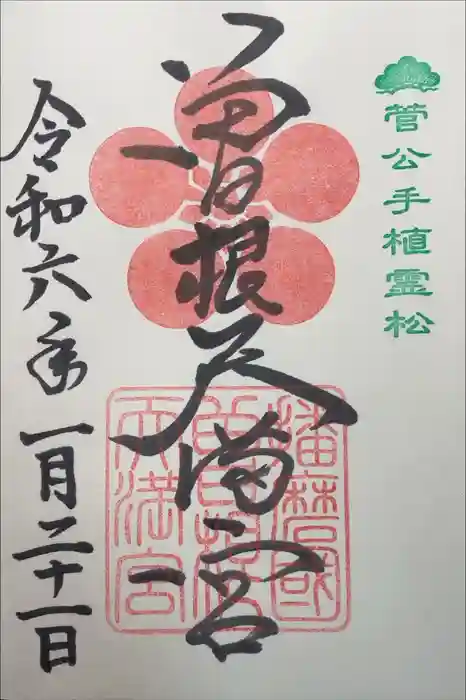 菅公手植霊松
曽根天満宮
播磨國曽根天満宮
令和六年一月二十一日